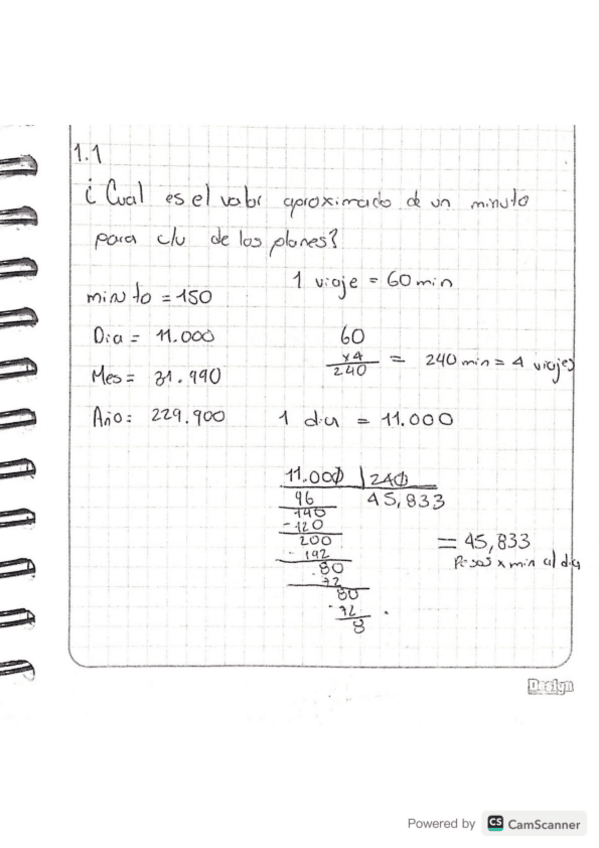 1.1
¿Cual es el valor aproximado de un minuto
para c/u de los planes?
minuto = 150
1 viaje = 60 min
Dia = 11.000
60
x4
240
= 240 min = 4 viajes
Mes = 31.990
Año: 229.900
1 dia = 11.000
11.000 | 240
96 45,833
140
-120
200
- 192
80
72
80
- 72
8
= 45,833
Pesos x min al dia
Design
Powered by CS CamScanner